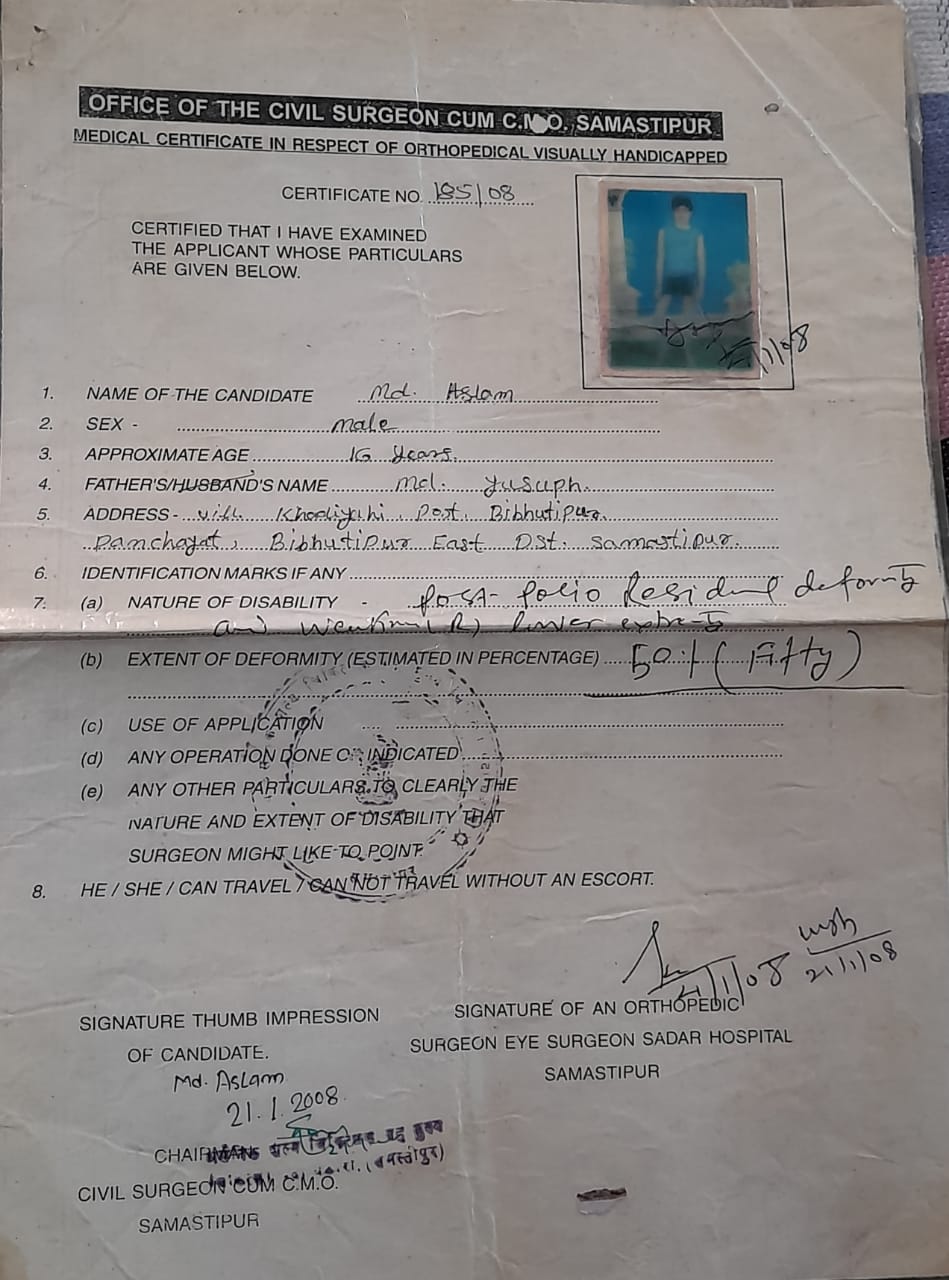 OFFICE OF THE CIVIL SURGEON CUM C.M.O. SAMASTIPUR
MEDICAL CERTIFICATE IN RESPECT OF ORTHOPEDICAL VISUALLY HANDICAPPED
CERTIFICATE NO. 185/08
CERTIFIED THAT I HAVE EXAMINED
THE APPLICANT WHOSE PARTICULARS
ARE GIVEN BELOW.
1. NAME OF THE CANDIDATE Md. Aslam
2. SEX - male
3. APPROXIMATE AGE 16 years.
4. FATHER'S/HUSBAND'S NAME Md. Yusuph.
5. ADDRESS - vill. Khadiyahi, Post. Bibhutipur.
Panchayat, Bibhutipur East Dst. Samastipur.
6. IDENTIFICATION MARKS IF ANY
7. (a) NATURE OF DISABILITY - Post-Polio Residual deformity
and (R) lower extremity
(b) EXTENT OF DEFORMITY (ESTIMATED IN PERCENTAGE) 50% (Fifty)
(c) USE OF APPLICATION
(d) ANY OPERATION DONE OR INDICATED
(e) ANY OTHER PARTICULARS TO CLEARLY THE
NATURE AND EXTENT OF DISABILITY THAT
SURGEON MIGHT LIKE TO POINT.
8. HE / SHE / CAN TRAVEL / CAN NOT TRAVEL WITHOUT AN ESCORT.
21/1/08
21/1/08
SIGNATURE THUMB IMPRESSION
OF CANDIDATE.
Md. Aslam
21.1.2008
SIGNATURE OF AN ORTHOPEDIC
SURGEON EYE SURGEON SADAR HOSPITAL
SAMASTIPUR
CHAIRMAN
CIVIL SURGEON CUM C.M.O.
SAMASTIPUR